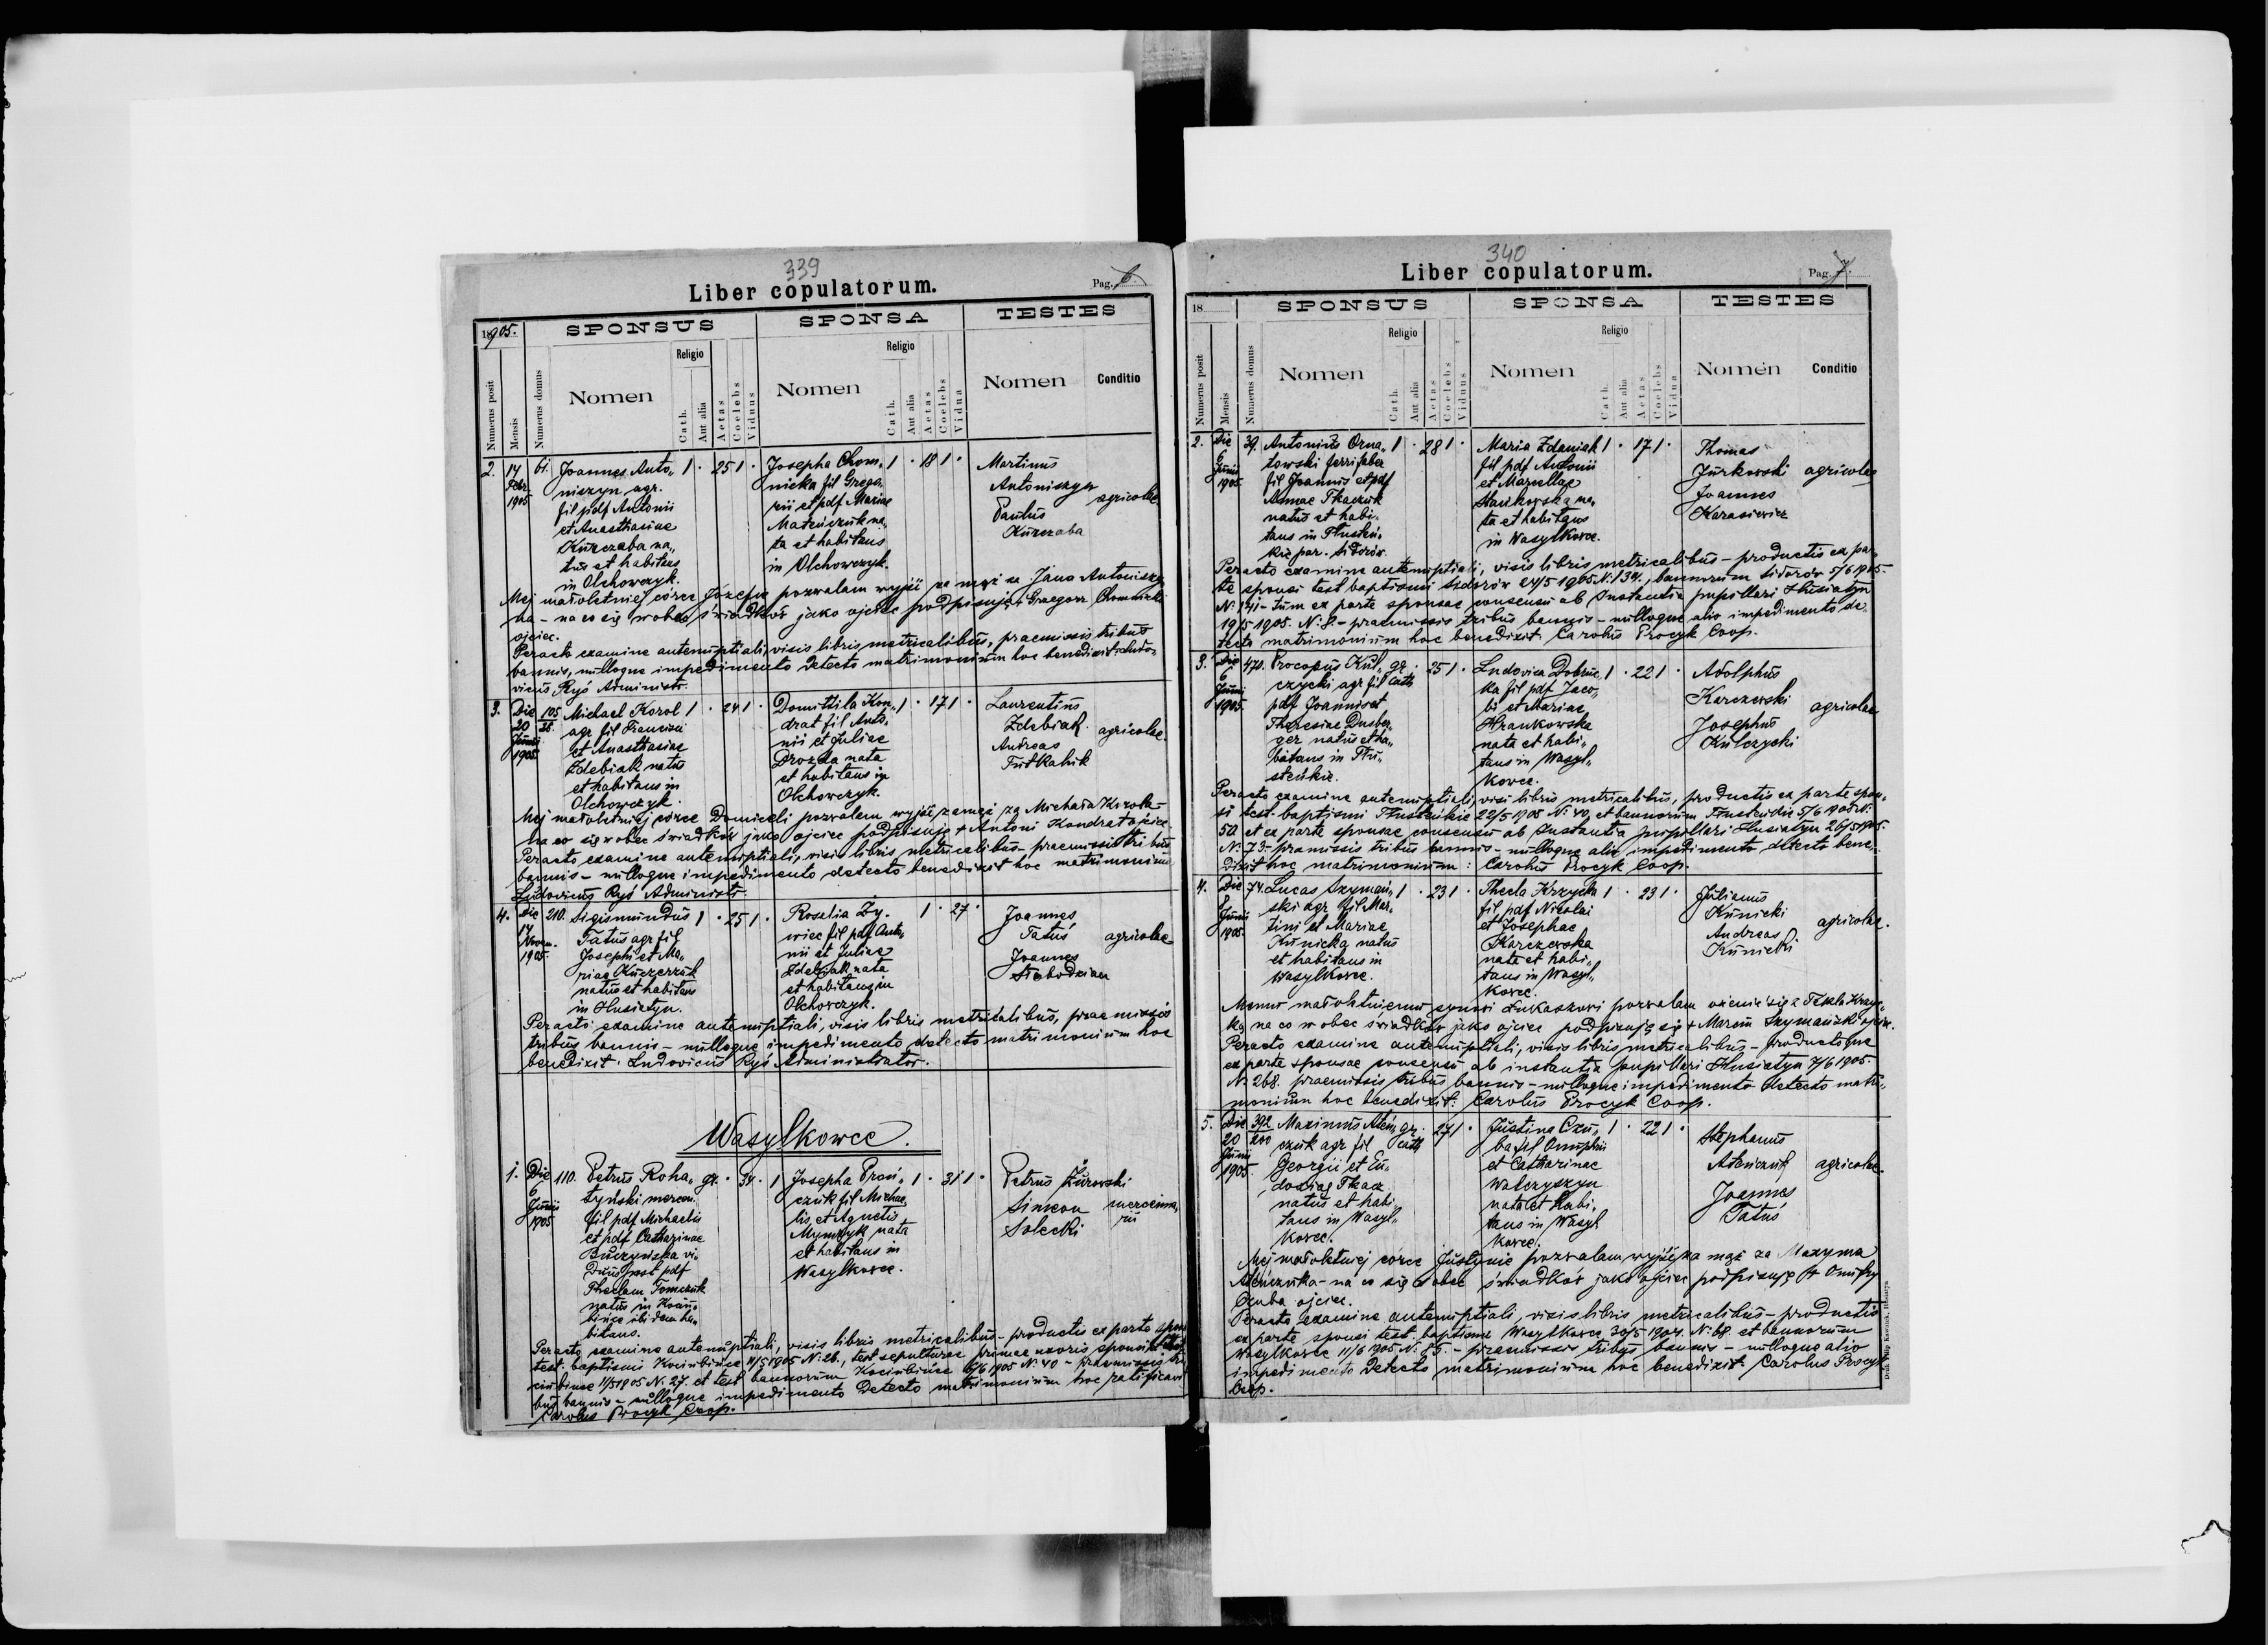 339
Liber copulatorum.
Pag. 6.
1905.
SPONSUS
SPONSA
TESTES
Numerus posit
Mensis
Numerus domus
Nomen
Religio
Cath.
Aut alia
Aetas
Coelebs
Viduus
Nomen
Religio
Cath.
Aut alia
Aetas
Coelebs
Vidua
Nomen
Conditio
2.
14
Febr.
1905
61.
Joannes Anto„
niszyn agr.
fil pdf Antonii
et Anasthasiae
Kurczaba na„
tus et habitans
in Olchowczyk.
1 · 25 1 ·
Josepha Chom„
nicka fil Grego„
rii et pdf Mariae
Mateuczuk na„
ta et habitans
in Olchowczyk.
1 · 18 1 ·
Martinus
Antoniszyn
Paulus
Kurczaba
agricolae
Mej małoletniej córce Józefie pozwalam wyjść za mąż za Jana Antoniszy
na – na co się wobec świadków jako ojciec podpisuję + Grzegorz Chomnicki
ojciec.
Peracto examine antenuptiali, visis libris metricalibus, praemissis tribus
bannis, nulloque impedimento detecto matrimonium hoc benedixit: Ludo„
vicus Ryś Administr.
3.
Die
20
Junii
1905
105
25.
Michael Korol
agr fil Francisci
et Anasthasiae
Zdebiak natus
et habitans in
Olchowczyk.
1 · 24 1 ·
Domithila Kon„
drat fil Anto„
nii et Juliae
Drozda nata
et habitans in
Olchowczyk.
1 · 17 1 ·
Laurentius
Zdebiak
Andreas
Tutkaluk
agricolae.
Mej małoletniej córce Domiceli pozwalam wyjść zamąż za Michała Korola –
na co się wobec świadków jako ojciec podpisuję + Antoni Kondrat ojciec.
Peracto examine antenuptiali, visis libris metricalibus – praemissis tribus
bannis – nulloque impedimento detecto benedixit hoc matrimonium
Ludovicus Ryś Administr.
4.
Die
14
Novem.
1905.
210.
Sigismundus
Tatuś agr fil
Josephi et Ma„
riae Kuczerzuk
natus et habitans
in Husiatyn.
1 · 25 1 ·
Rosalia Zy„
wiec fil pdf Anto„
nii et Juliae
Zdebiak nata
et habitans in
Olchowczyk.
1 · 27 ·
Joannes
Tatuś
Joannes
Słobodzian
agricolae
Peracto examine antenuptiali, visis libris metricalibus, praemissis
tribus bannis – nulloque impedimento detecto matrimonium hoc
benedixit: Ludovicus Ryś Administrator.
Wasylkowce.
1.
Die
6
Junii
1905
110.
Petrus Roha„
tyński mercen.
fil pdf Michaelis
et pdf Catharinae
Buczyńska vi„
duus post pdf
Theclam Tomczuk
natus in Kociu„
bińce ibidem ha„
bitans.
gr. · 34 · 1
Josepha Proń„
czuk fil Michae„
lis et Agnetis
Mymryk nata
et habitans in
Wasylkowce.
1 · 31 1 ·
Petrus Żurowski
Simeon
Solecki
mercenna„
rii
Peracto examine antenuptiali, visis libris metricalibus – productis ex parte sponsi
test. baptismi Kociubińce 11/5 1905 N. 26., test sepulturae primae uxoris sponsi
ciubińce 11/5 1905 N. 27. et test bannorum Kociubińce 6/6 1905 N. 40 – praemissis tri
bus bannis – nulloque impedimento detecto matrimonium hoc ratificavi
Carolus Procyk Coop.
340
Liber copulatorum.
Pag. 7.
18
SPONSUS
SPONSA
TESTES
Numerus posit
Mensis
Numerus domus
Nomen
Religio
Cath.
Aut alia
Aetas
Coelebs
Viduus
Nomen
Religio
Cath.
Aut alia
Aetas
Coelebs
Vidua
Nomen
Conditio
2.
Die
6
Junii
1905
39.
Antonius Orna„
towski ferrifaber
fil Joannis et pdf
Annae Tkaczuk
natus et habi„
tans in Tłusteń„
kie par. Sidorów.
1 · 28 1 ·
Maria Zdaniak
fil pdf Antonii
et Marcellae
Stankowska na„
ta et habitans
in Wasylkowce.
1 · 17 1 ·
Thomas
Jurkowski
Joannes
Karasiewicz
agricolae
Peracto examine antenuptiali, visis libris metricalibus – productis ex par„
te sponsi test baptismi Sidorów 24/5 1905 N. 134., bannorum Sidorów 5/6 1905
N. 141 – tum ex parte sponsae consensu ab Instantia pupillari Husiatyn
19/5 1905. N. 8. – praemissis tribus bannis – nulloque alio impedimento de„
tecto matrimonium hoc benedixit Carolus Procyk Coop.
3.
Die
6
Junii
1905
470.
Procopius Kul„
czycki agr fil
pdf Joannis et
Theresiae Dusber„
ger natus et ha„
bitans in Tłu„
steńkie.
gr.
cath
· 25 1 ·
Ludovica Dobruc„
ka fil pdf Jaco„
bi et Mariae
Hrankowska
nata et habi„
tans in Wasyl„
kowce.
1 · 22 1 ·
Adolphus
Karczewski
Josephus
Kulczycki
agricolae
Peracto examine antenuptiali, visi libris metricalibus, productis ex parte spon„
si test baptismi Tłusteńkie 22/5 1905 N. 40, et bannorum Tłusteńkie 5/6 1905 N.
50 et ex parte sponsae consensu ab Instantia pupillari Husiatyn 26/5 1905.
N. 73. – pramissis tribus bannis – nulloque alio impedimento detecto bene„
dixit hoc matrimonium: Carolus Procyk Coop.
4.
Die
8
Junii
1905.
74.
Lucas Szymań„
ski agr fil Mar„
tini et Mariae
Kunicka natus
et habitans in
Wasylkowce.
1 · 23 1 ·
Thecla Krzycka
fil pdf Nicolai
et Josephae
Karczewska
nata et habi„
tans in Wasyl„
kowce.
1 · 23 1 ·
Julianus
Kunicki
Andreas
Kunicki
agricolae.
Memu małoletniemu synowi Łukaszowi pozwalam ożenić się z Teklą Krzyc„
ką na co w obec świadków jako ojciec podpisuję się + Marcin Szymański ojciec.
Peracto examine antenuptiali, visis libris metricalibus – productoque
ex parte sponsae consensu ab instantia pupillari Husiatyn 7/6 1905.
N. 268. praemissis tribus bannis – nulloque impedimento detecto matri„
monium hoc benedixit: Carolus Procyk Coop.
5.
Die
20
Junii
1905.
392
200
Maximus Ateń„
czuk agr fil
Georgii et Eu„
doxiae Tkacz
natus et habi„
tans in Wasyl„
kowce.
gr.
cath
· 27 1 ·
Justina Czu„
ba fil Onuphrii
et Catharinae
Walczyszyn
nata et habi„
tans in Wasyl
kowce.
1 · 22 1 ·
Stephanus
Ateńczuk
Joannes
Tatuś
agricolae.
Mej małoletniej córce Justynie pozwalam wyjść za mąż za Maxyma
Ateńczuka – na co się w obec świadków jako ojciec podpisuję + Onufry
Czuba ojciec.
Peracto examine antenuptiali, visis libris metricalibus – productis
ex parte sponsi test. baptismi Wasylkowce 30/5 1904. N. 68. et bannorum
Wasylkowce 11/6 1905 N. 85. – praemissis tribus bannis – nulloque alio
impedimento detecto matrimonium hoc benedixit Carolus Procyk
Coop.